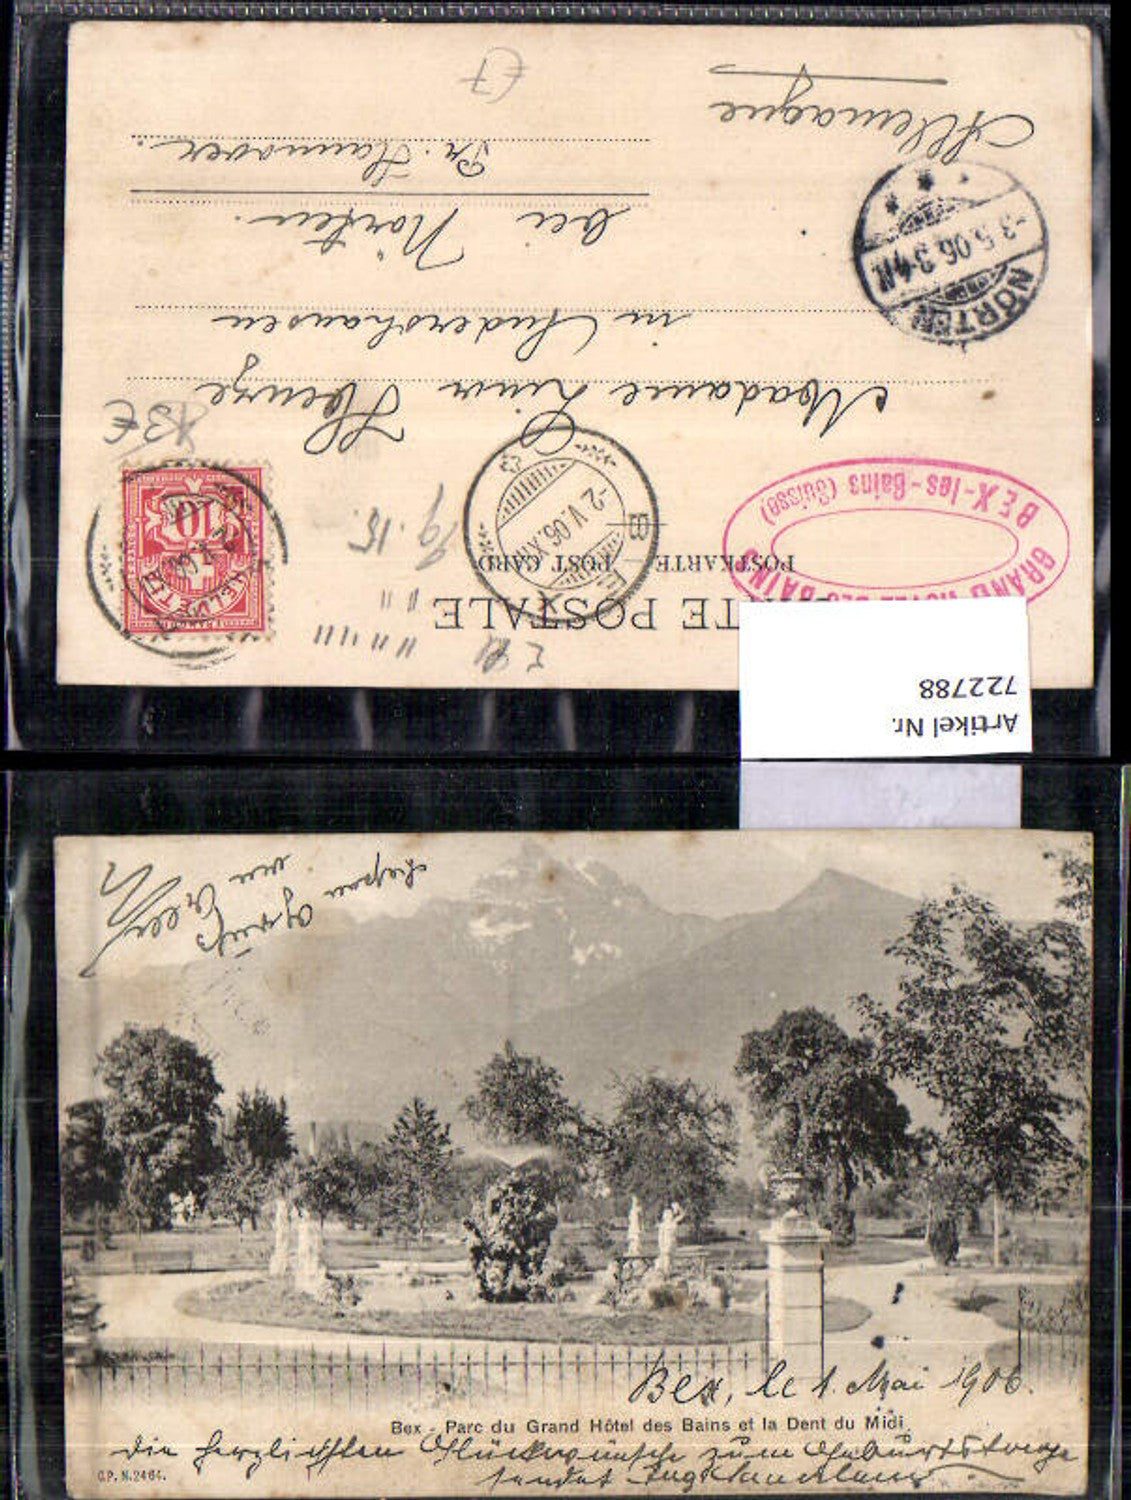 Artikel Nr.
722788
CARTE POSTALE
POSTKARTE POST CARD
GRAND HOTEL DES BAINS
BEX-les-Bains (Suisse)
HELVETIA
10
BEX
-2.V.06.XII
Madame
in Sudershausen
bei Nörten.
Pr. Hannover.
Allemagne
NÖRTEN
-3.5.06.3-4N.
€7
13€
Bex, le 1. Mai 1906.
Bex - Parc du Grand Hôtel des Bains et la Dent du Midi
die herzlichsten Glückwünsche zum Geburtstage
sendet
C.P.N. 2464.